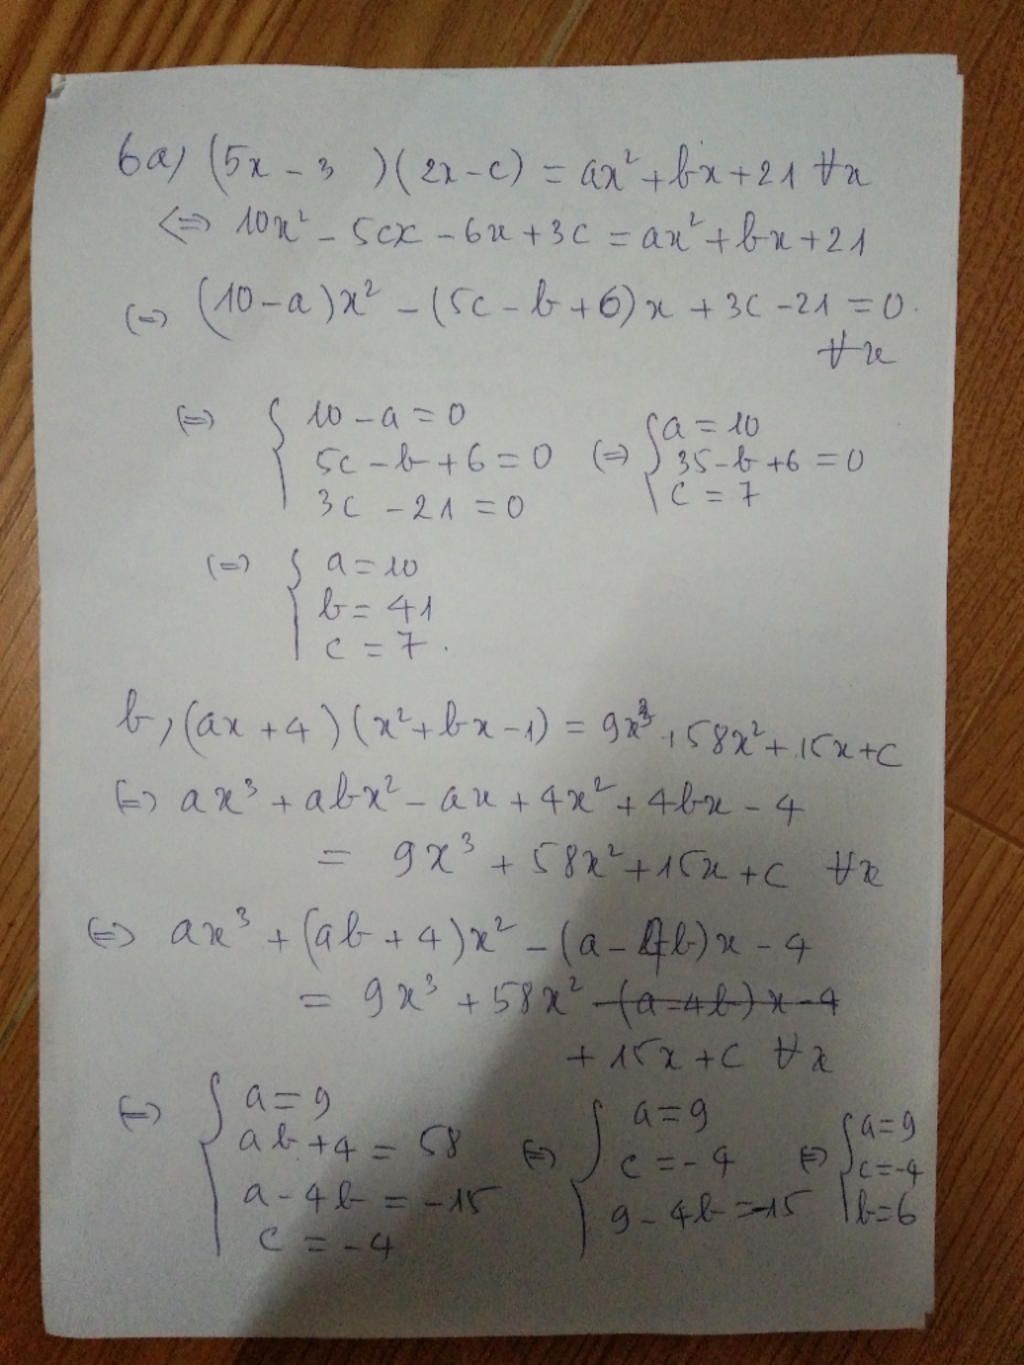 6a, (5x - 3 )(2x - c) = ax² + bx + 21 ∀x
<=> 10x² - 5cx - 6x + 3c = ax² + bx + 21
(=) (10 - a)x² - (5c - b + 6)x + 3c - 21 = 0.
∀x
(=) { 10 - a = 0 5c - b + 6 = 0 3c - 21 = 0 (=) { a = 10 35 - b + 6 = 0 c = 7
(=) { a = 10 b = 41 c = 7.
b, (ax + 4)(x² + bx - 1) = 9x³ + 58x² + 15x + c
(=) ax³ + abx² - ax + 4x² + 4bx - 4
= 9x³ + 58x² + 15x + c ∀x
(=) ax³ + (ab + 4)x² - (a - 4b)x - 4
= 9x³ + 58x² - (a - 4b)x - 4
+ 15x + c ∀x
(=) { a = 9 ab + 4 = 58 a - 4b = -15 c = -4 (=) { a = 9 c = -4 9 - 4b = -15 (=) { a = 9 c = -4 b = 6